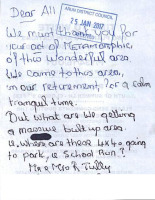 Dear All
ARUN DISTRICT COUNCIL
25 JAN 2017
We must thank you for
your act of Metamorphic
of this wonderful area
We came to this area,
in our retirement, for a calm
tranquil time.
But what are we getting
a massive built up area.
ie, where are these LKH going
to park, ie School Run?
Mr & Mrs R Tully